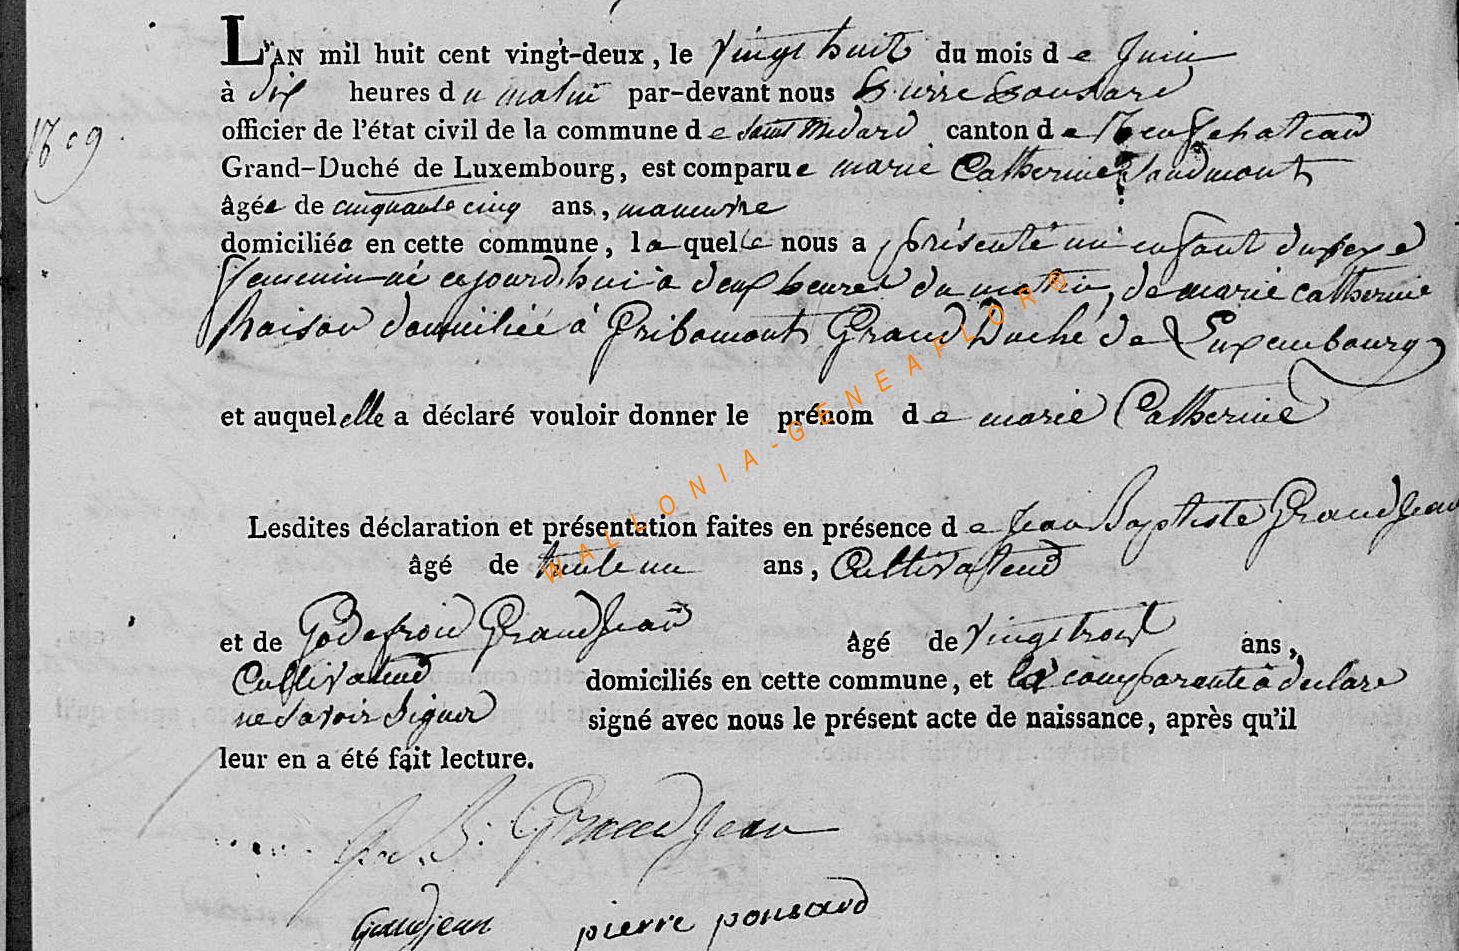 L'AN mil huit cent vingt-deux, le vingt huit du mois de Juin
à dix heures du matin par-devant nous Pierre Ponsard
officier de l'état civil de la commune de Saint Medard canton de Neufchateau
Grand-Duché de Luxembourg, est comparue marie Catherine
âgée de cinquante cinq ans, manuvre
domiciliée en cette commune, laquelle nous a présenté un enfant du sexe
femenin né cejourd'hui à deux heures du matin, de marie catherine
domiciliée à Gribomont Grand Duché de Luxembourg
et auquel elle a déclaré vouloir donner le prénom de marie Catherine
Lesdites déclaration et présentation faites en présence de Jean Baptiste Grand Jean
âgé de trente un ans, Cultivateur
et de Godefroid Grand Jean âgé de vingt trois ans,
Cultivateur domiciliés en cette commune, et la comparente a declaré
ne savoir signer signé avec nous le présent acte de naissance, après qu'il
leur en a été fait lecture.
J. B. Grand Jean
Grandjean pierre ponsard
WALLONIA-GENEAFLORE